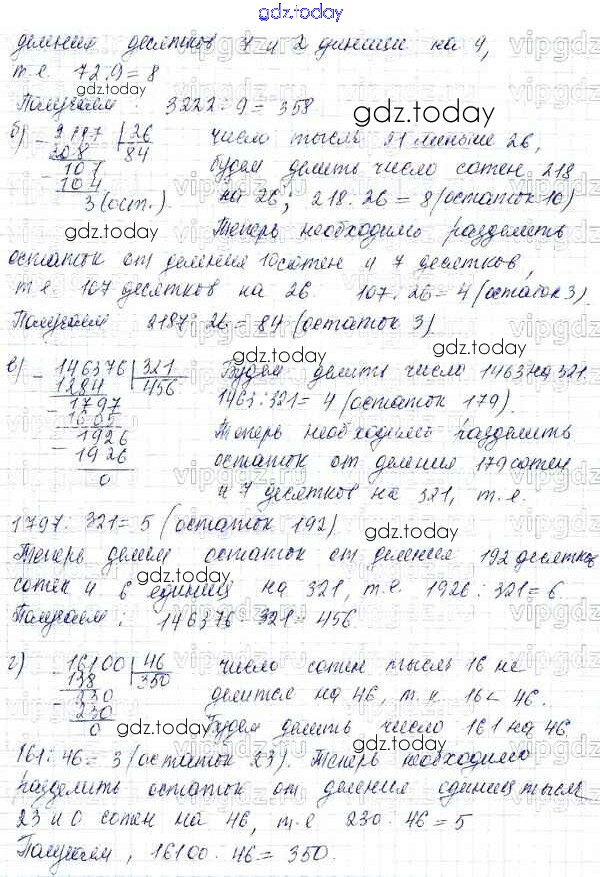 gdz.today
деления десятков 7 и 2 единиц на 9,
т.е. 72:9=8
Получаем: 3222:9=358
gdz.today
б) 2187 | 26 число тысяч 21 меньше 26,
208 | 84 будем делить число сотен 218
107 на 26; 218:26=8(остаток 10)
104
3(ост.). Теперь необходимо разделить
gdz.today
остаток от деления 10 сотен и 7 десятков,
т.е. 107 десятков на 26. 107:26=4(остаток 3).
Получаем 2187:26=84(остаток 3)
gdz.today
в) 146376 | 321 Будем делить число 1463 на 321.
1284 | 456 1463:321=4(остаток 179).
1797
1605 Теперь необходимо разделить
1926 остаток от деления 179 сотен
1926
0 и 7 десятков на 321, т.е.
1797:321=5(остаток 192).
gdz.today
Теперь делим остаток от деления 192 десятков
gdz.today
сотен и 6 единиц на 321, т.е. 1926:321=6.
Получаем: 146376:321=456
г) 16100 | 46 число сотен тысяч 16 не
138 | 350 делится на 46, т.к. 16<46.
230
230
0 Будем делить число 161 на 46
gdz.today
161:46=3(остаток 23). Теперь необходимо
разделить остаток от деления единиц тысяч
23 и 0 сотен на 46, т.е 230:46=5
Получаем, 16100:46=350.
gdz.today